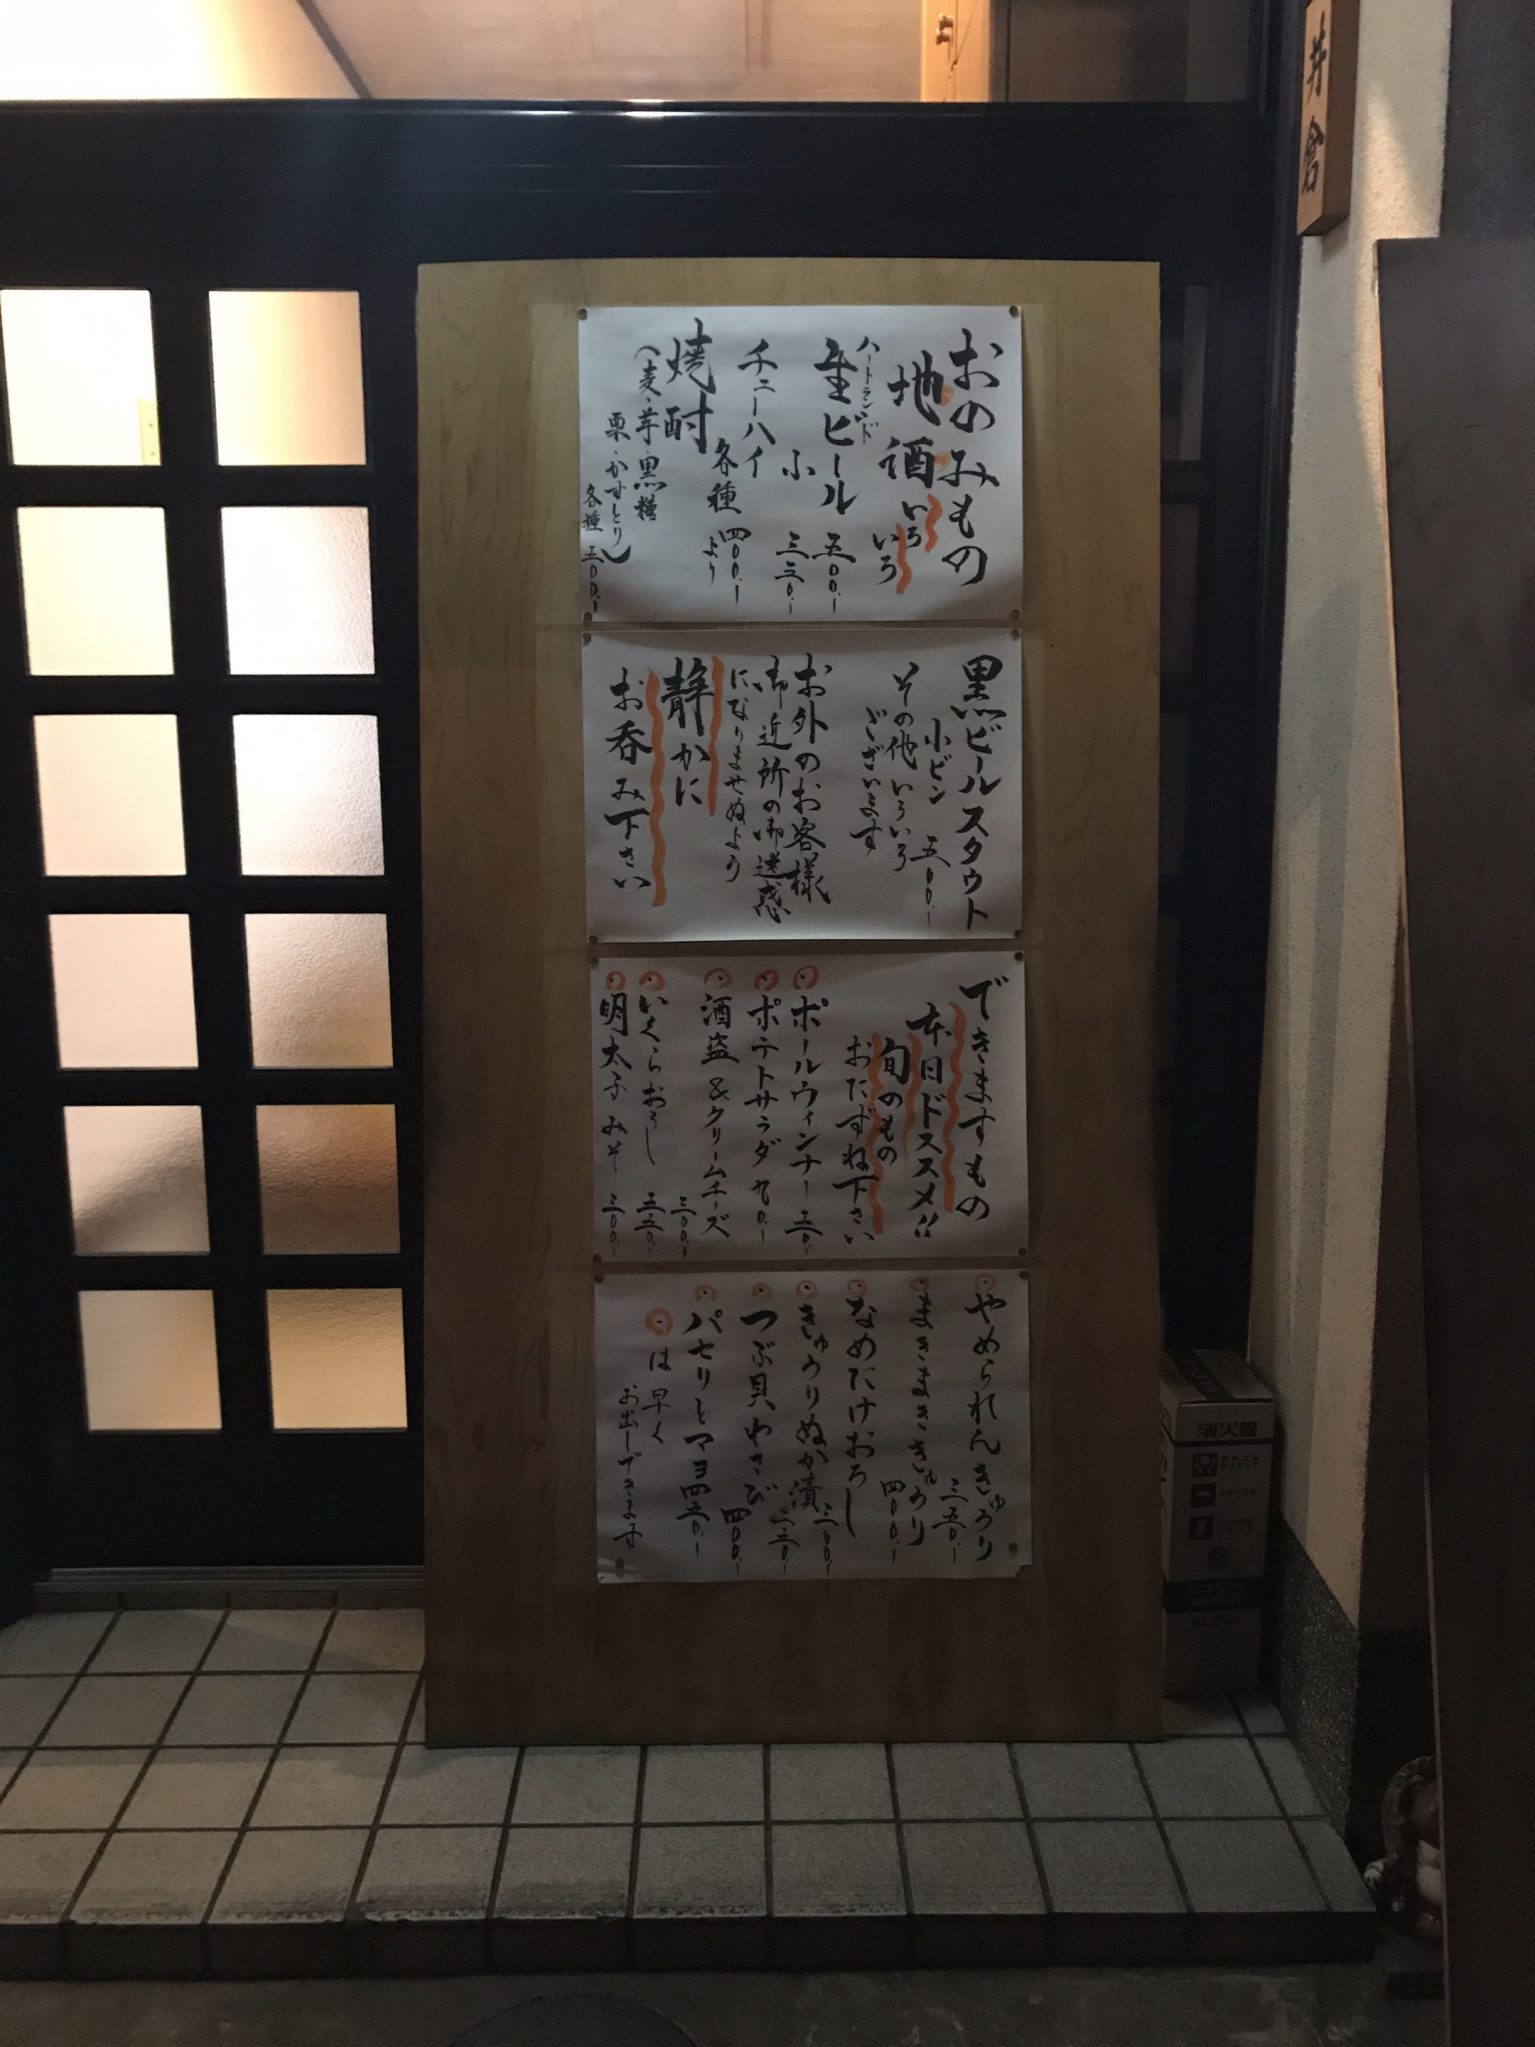 井倉
おのみもの
地酒いろいろ
ハートランド
生ビール 五〇〇.-
小 三三〇.-
チューハイ
各種 四〇〇.-
より
焼酎
(麦・芋・黒糖
栗・かすとり)
各種 五〇〇.-
黒ビールスタウト
小ビン 五〇〇.-
その他いろいろ
ございます
お外のお客様
御近所の御迷惑
になりませぬよう
静かに
お呑み下さい
できますもの
本日ドススメ!!
旬のもの
おたずね下さい
ポールウィンナー 五〇.-
ポテトサラダ 九〇.-
酒盗&クリームチーズ
三〇〇.-
いくらおろし 五五〇.-
明太子みそ 三〇〇.-
やめられんきゅうり
三五〇.-
まきまききゅうり
四〇〇.-
なめたけおろし
三〇〇.-
きゅうりぬか漬
三五〇.-
つぶ貝わさび 四〇〇.-
パセリとマヨ 四五〇.-
は早く
お出しできます
消火器